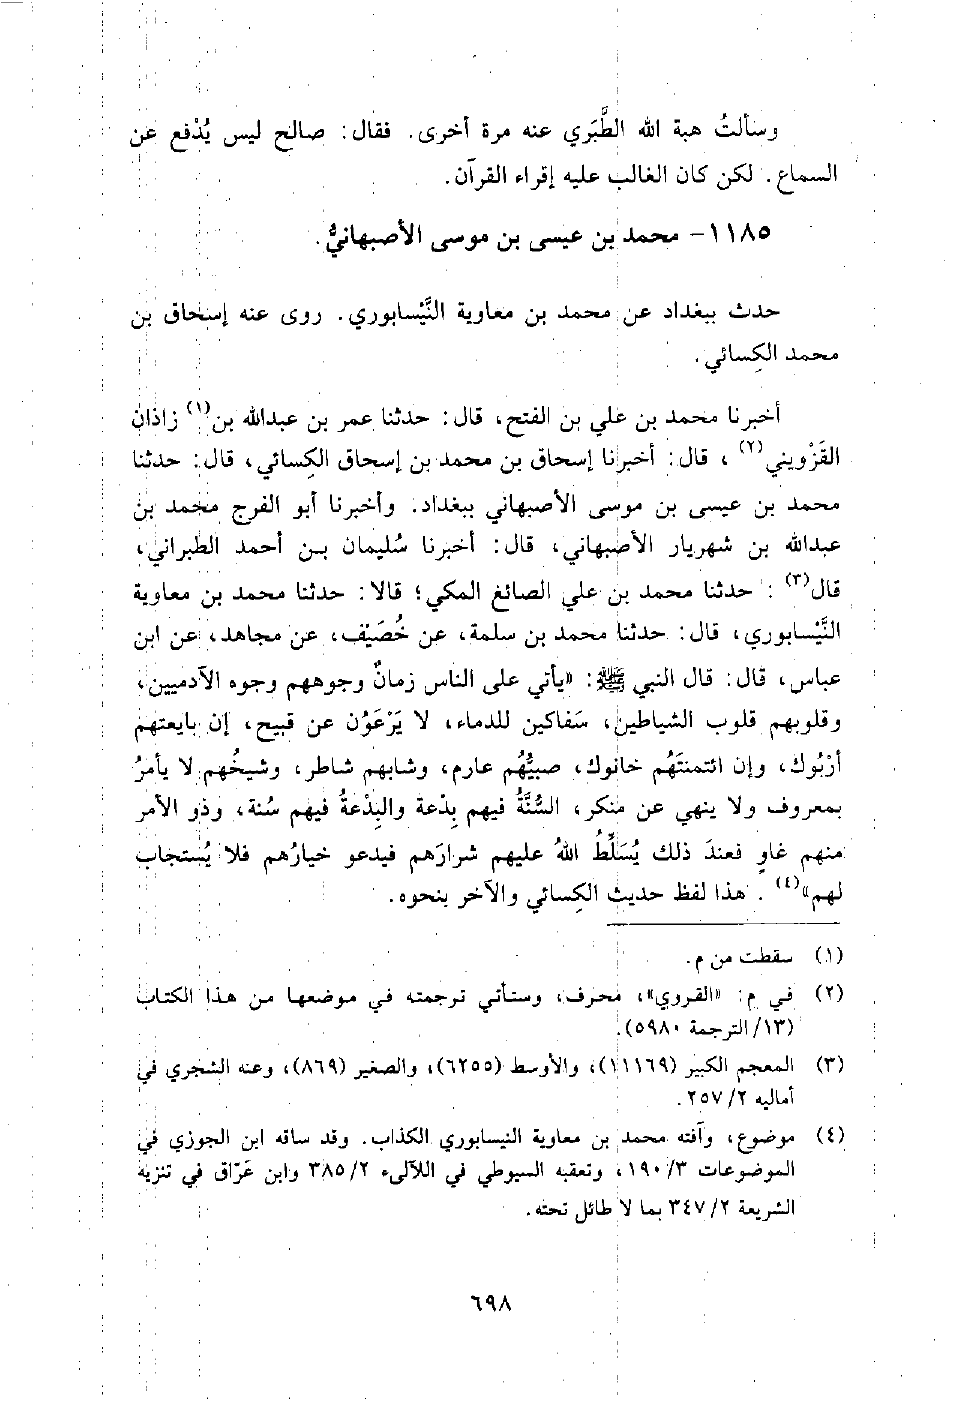 وسألتُ هبة الله الطَّبَري عنه مرة أخرى. فقال: صالح ليس يُدْفع عن
السماع. لكن كان الغالب عليه إقراء القرآن.
١١٨٥- محمد بن عيسى بن موسى الأصبهانيُّ.
حدث ببغداد عن محمد بن معاوية النَّيْسابوري. روى عنه إسحاق بن
محمد الكِسائي.
أخبرنا محمد بن علي بن الفتح، قال: حدثنا عمر بن عبدالله بن(١) زاذان
القَزْويني(٢)، قال: أخبرنا إسحاق بن محمد بن إسحاق الكِسائي، قال: حدثنا
محمد بن عيسى بن موسى الأصبهاني ببغداد. وأخبرنا أبو الفرج محمد بن
عبدالله بن شهريار الأصبهاني، قال: أخبرنا سُليمان بن أحمد الطبراني،
قال(٣): حدثنا محمد بن علي الصائغ المكي؛ قالا: حدثنا محمد بن معاوية
النَّيْسابوري، قال: حدثنا محمد بن سلمة، عن خُصَيْف، عن مجاهد، عن ابن
عباس، قال: قال النبي ﷺ: «يأتي على الناس زمانٌ وجوههم وجوه الآدميين،
وقلوبهم قلوب الشياطين، سَفاكين للدماء، لا يَرْعَوْن عن قبيح، إن بايعتهم
أرْبُوك، وإن ائتمنتَهُم خانوك، صبيُّهُم عارم، وشابهم شاطر، وشيخُهم لا يأمرُ
بمعروف ولا ينهي عن منكر، السُّنَّةُ فيهم بِدْعة والبِدْعةُ فيهم سُنة، وذو الأمر
منهم غاوٍ فعندَ ذلك يُسَلِّطُ اللهُ عليهم شرارَهم فيدعو خيارُهم فلا يُستجاب
لهم»(٤). هذا لفظ حديث الكِسائي والآخر بنحوه.
(١) سقطت من م.
(٢) في م: «القروي»، محرف، وستأتي ترجمته في موضعها من هذا الكتاب
(١٣/ الترجمة ٥٩٨٠).
(٣) المعجم الكبير (١١١٦٩)، والأوسط (٦٢٥٥)، والصغير (٨٦٩)، وعنه الشجري في
أماليه ٢/ ٢٥٧.
(٤) موضوع، وآفته محمد بن معاوية النيسابوري الكذاب. وقد ساقه ابن الجوزي في
الموضوعات ٣/ ١٩٠، وتعقبه السيوطي في اللآلىء ٢/ ٣٨٥ وابن عَرّاق في تنزيه
الشريعة ٢/ ٣٤٧ بما لا طائل تحته.
٦٩٨